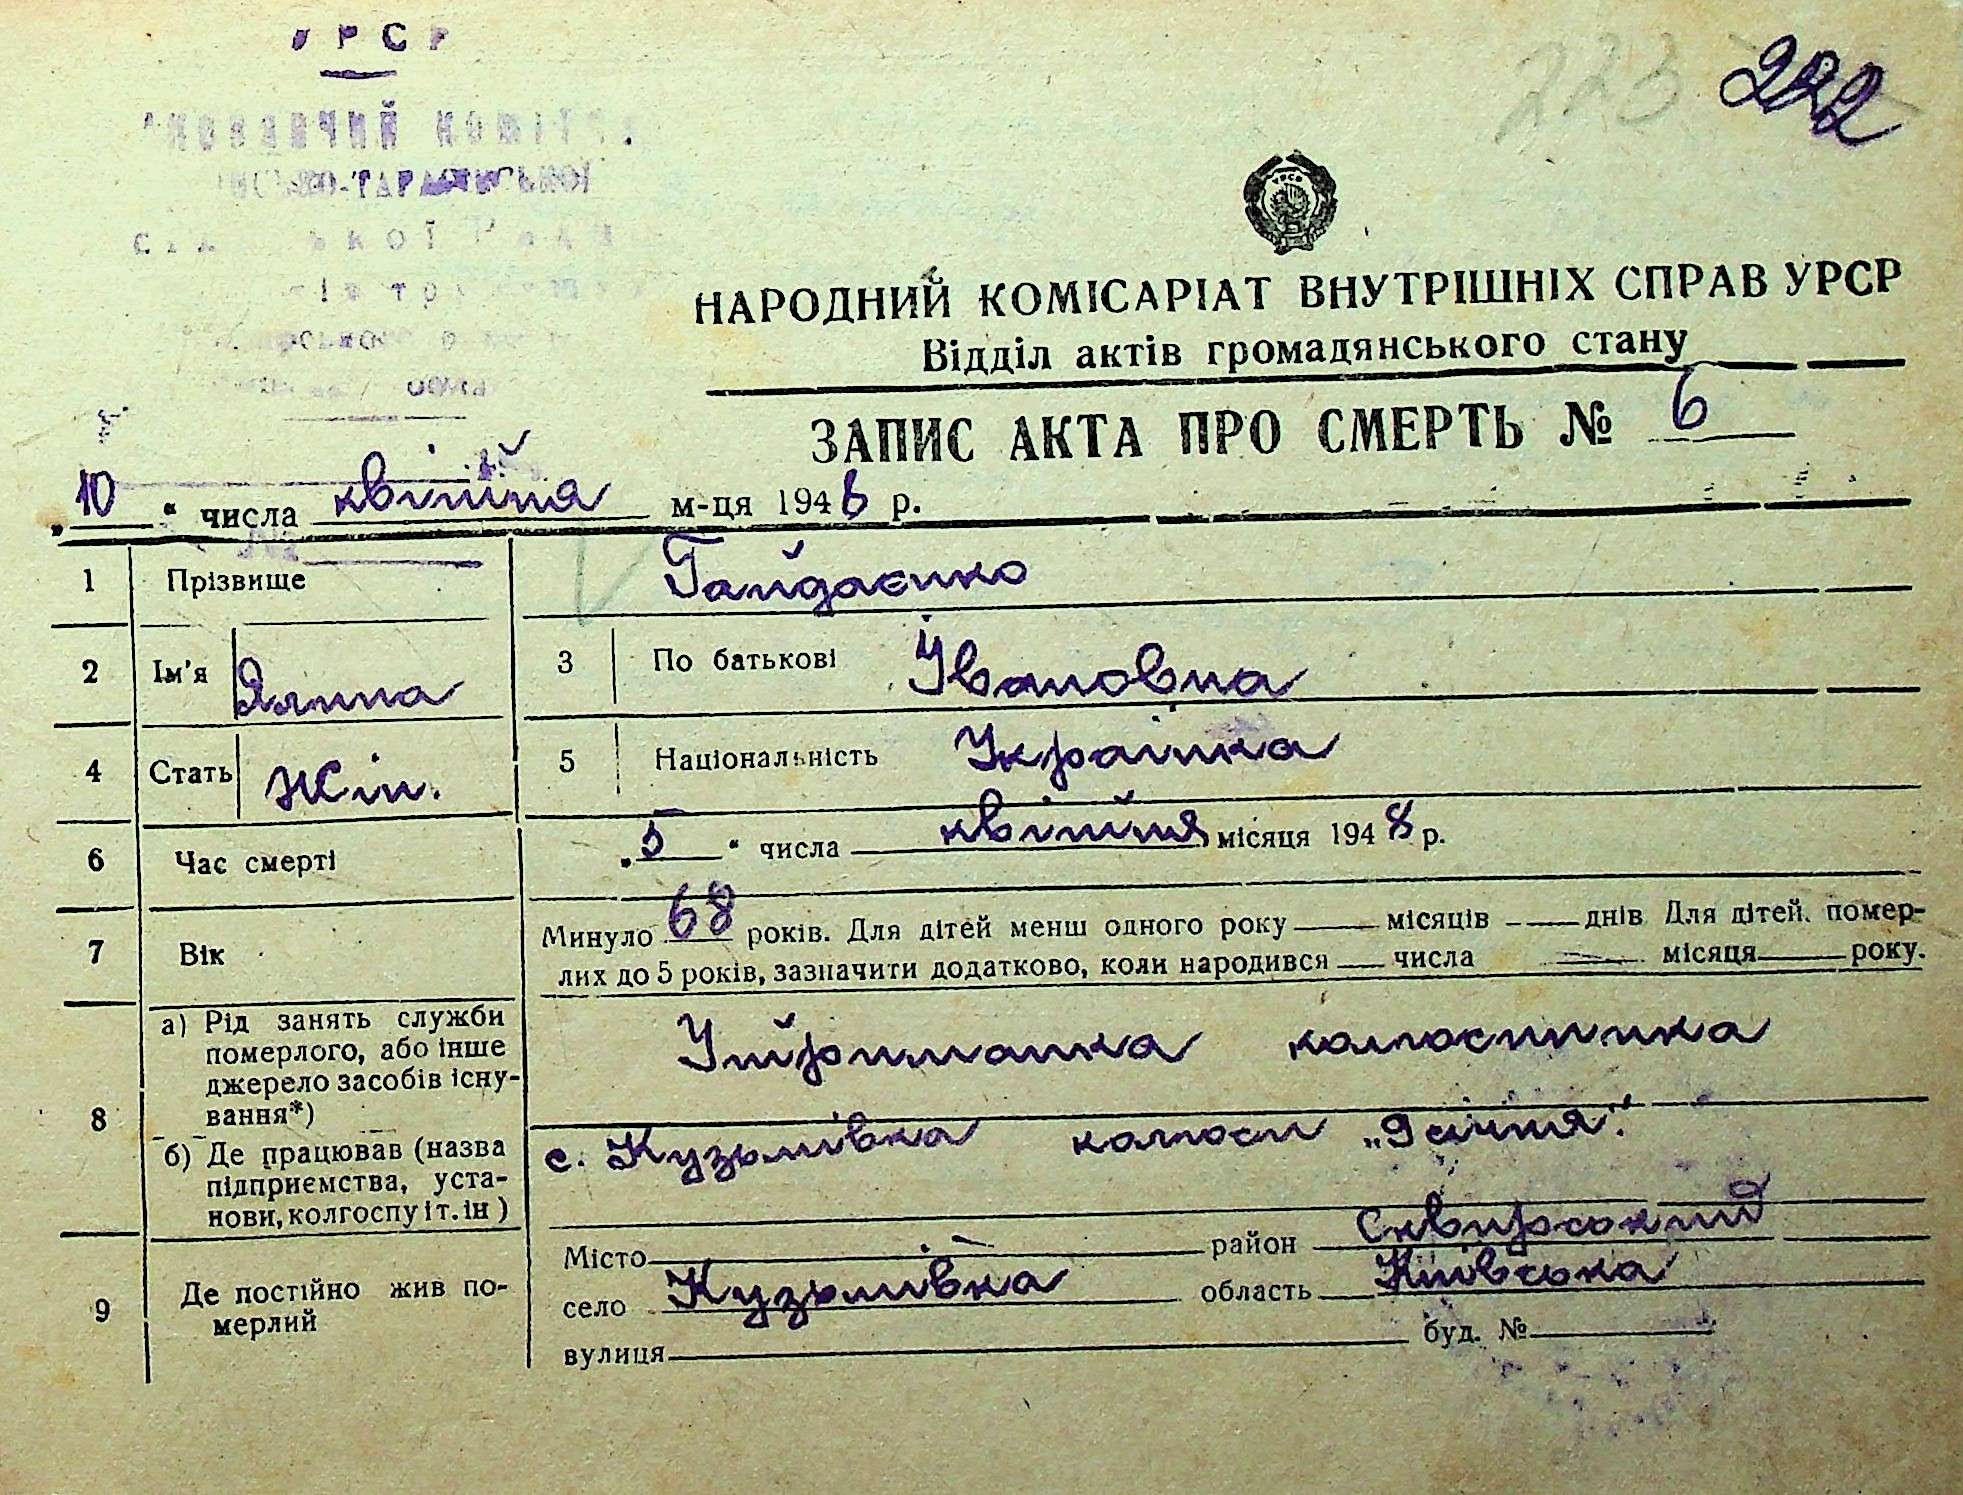 УРСР
223 222
НАРОДНИЙ КОМІСАРІАТ ВНУТРІШНІХ СПРАВ УРСР
Відділ актів громадянського стану
ЗАПИС АКТА ПРО СМЕРТЬ № 6
„10“ числа квітня м-ця 1948 р.
1 Прізвище Гайдаєнко
2 Ім'я Ялина 3 По батькові Івановна
4 Стать Жін. 5 Національність Українка
6 Час смерті „5“ числа квітня місяця 1948 р.
7 Вік Минуло 68 років. Для дітей менш одного року — місяців — днів Для дітей, помер-
лих до 5 років, зазначити додатково, коли народився — числа — місяця — року.
8 а) Рід занять служби померлого, або інше джерело засобів існу-вання*) Утриманка колгоспника
б) Де працював (назва підприємства, уста-нови, колгоспу і т. ін) с. Кузьмівка колгосп „9 січня".
9 Де постійно жив по-мерлий Місто — район Сквирський
село Кузьмівка область Київська
вулиця буд. №